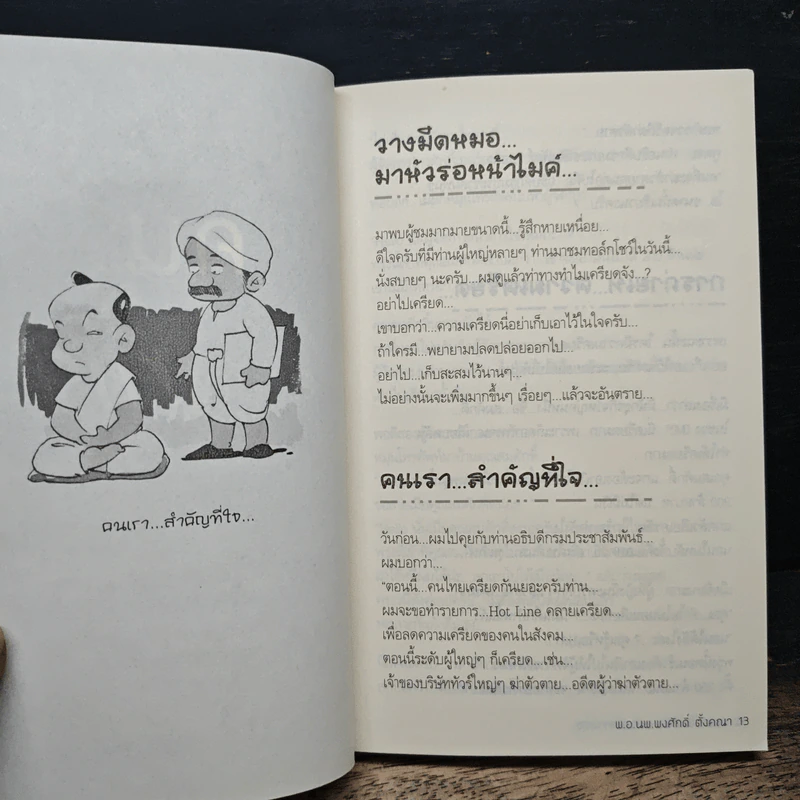 คนเรา...สำคัญที่ใจ...
วางมีดหมอ...
มาหัวร่อหน้าไมค์...
มาพบผู้ชมมากมายขนาดนี้...รู้สึกหายเหนื่อย...
ดีใจครับที่มีท่านผู้ใหญ่หลายๆ ท่านมาชมทอล์กโชว์ในวันนี้...
นั่งสบายๆ นะครับ...ผมดูแล้วท่าทางทำไมเครียดจัง...?
อย่าไปเครียด...
เขาบอกว่า...ความเครียดนี่อย่าเก็บเอาไว้ในใจครับ...
ถ้าใครมี...พยายามปลดปล่อยออกไป...
อย่าไป...เก็บสะสมไว้นานๆ...
ไม่อย่างนั้นจะเพิ่มมากขึ้นๆ เรื่อยๆ...แล้วจะอันตราย...
คนเรา...สำคัญที่ใจ...
วันก่อน...ผมไปคุยกับท่านอธิบดีกรมประชาสัมพันธ์...
ผมบอกว่า...
"ตอนนี้...คนไทยเครียดกันเยอะครับท่าน...
ผมจะขอทำรายการ...Hot Line คลายเครียด...
เพื่อลดความเครียดของคนในสังคม...
ตอนนี้ระดับผู้ใหญ่ๆ ก็เครียด...เช่น...
เจ้าของบริษัททัวร์ใหญ่ๆ ฆ่าตัวตาย...อดีตผู้ว่าฆ่าตัวตาย...
พ.อ.นพ.พงศักดิ์ ตั้งคณา 13